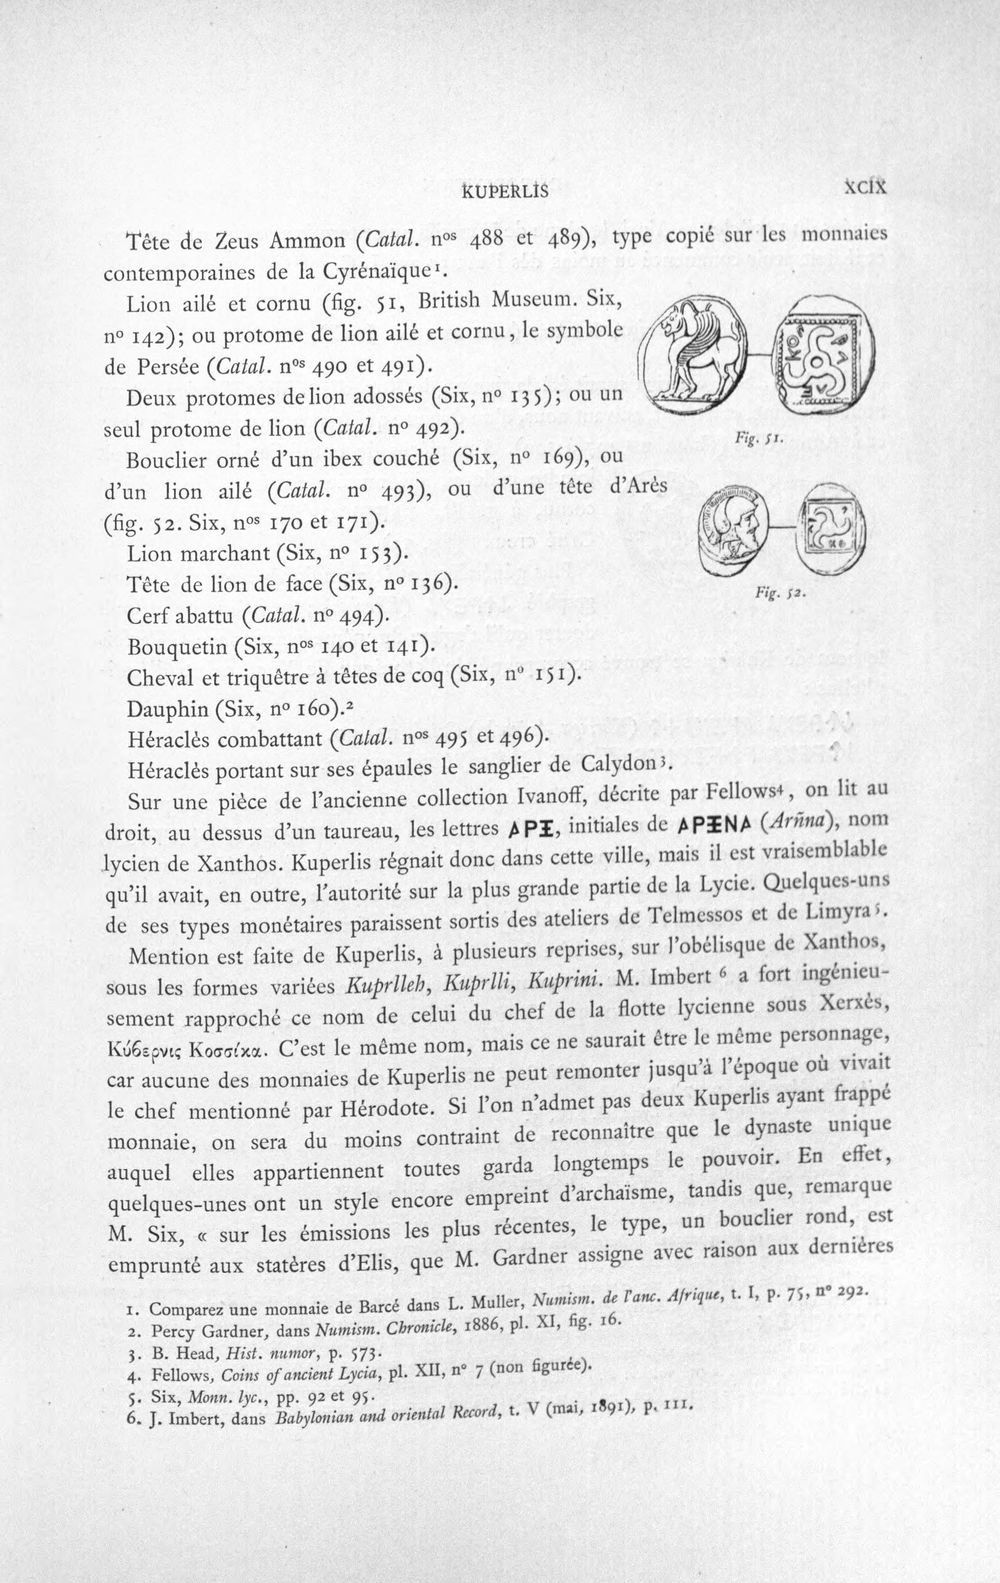 KUPERLIS XCIX
Tête de Zeus Ammon (Catal. nos 488 et 489), type copié sur les monnaies
contemporaines de la Cyrénaïque¹.
Lion ailé et cornu (fig. 51, British Museum. Six,
nº 142); ou protome de lion ailé et cornu, le symbole
de Persée (Catal. nos 490 et 491).
Deux protomes de lion adossés (Six, nº 135); ou un
seul protome de lion (Catal. nº 492).
Fig. 51.
Bouclier orné d'un ibex couché (Six, nº 169), ou
d'un lion ailé (Catal. nº 493), ou d'une tête d'Arès
(fig. 52. Six, nos 170 et 171).
Lion marchant (Six, nº 153).
Tête de lion de face (Six, nº 136).
Fig. 52.
Cerf abattu (Catal. nº 494).
Bouquetin (Six, nos 140 et 141).
Cheval et triquêtre à têtes de coq (Six, nº 151).
Dauphin (Six, nº 160).²
Héraclès combattant (Catal. nos 495 et 496).
Héraclès portant sur ses épaules le sanglier de Calydon³.
Sur une pièce de l'ancienne collection Ivanoff, décrite par Fellows⁴, on lit au
droit, au dessus d'un taureau, les lettres 𐊀𐊕𐊑, initiales de 𐊀𐊕𐊑𐊏𐊀 (Arñna), nom
lycien de Xanthos. Kuperlis régnait donc dans cette ville, mais il est vraisemblable
qu'il avait, en outre, l'autorité sur la plus grande partie de la Lycie. Quelques-uns
de ses types monétaires paraissent sortis des ateliers de Telmessos et de Limyra⁵.
Mention est faite de Kuperlis, à plusieurs reprises, sur l'obélisque de Xanthos,
sous les formes variées Kuprlleh, Kuprlli, Kuprini. M. Imbert ⁶ a fort ingénieu-
sement rapproché ce nom de celui du chef de la flotte lycienne sous Xerxès,
Κύϐερνις Κοσσίκα. C'est le même nom, mais ce ne saurait être le même personnage,
car aucune des monnaies de Kuperlis ne peut remonter jusqu'à l'époque où vivait
le chef mentionné par Hérodote. Si l'on n'admet pas deux Kuperlis ayant frappé
monnaie, on sera du moins contraint de reconnaître que le dynaste unique
auquel elles appartiennent toutes garda longtemps le pouvoir. En effet,
quelques-unes ont un style encore empreint d'archaïsme, tandis que, remarque
M. Six, « sur les émissions les plus récentes, le type, un bouclier rond, est
emprunté aux statères d'Elis, que M. Gardner assigne avec raison aux dernières
1. Comparez une monnaie de Barcé dans L. Muller, Numism. de l'anc. Afrique, t. I, p. 75, nº 292.
2. Percy Gardner, dans Numism. Chronicle, 1886, pl. XI, fig. 16.
3. B. Head, Hist. numor, p. 573.
4. Fellows, Coins of ancient Lycia, pl. XII, nº 7 (non figurée).
5. Six, Monn. lyc., pp. 92 et 95.
6. J. Imbert, dans Babylonian and oriental Record, t. V (mai, 1891), p. 111.